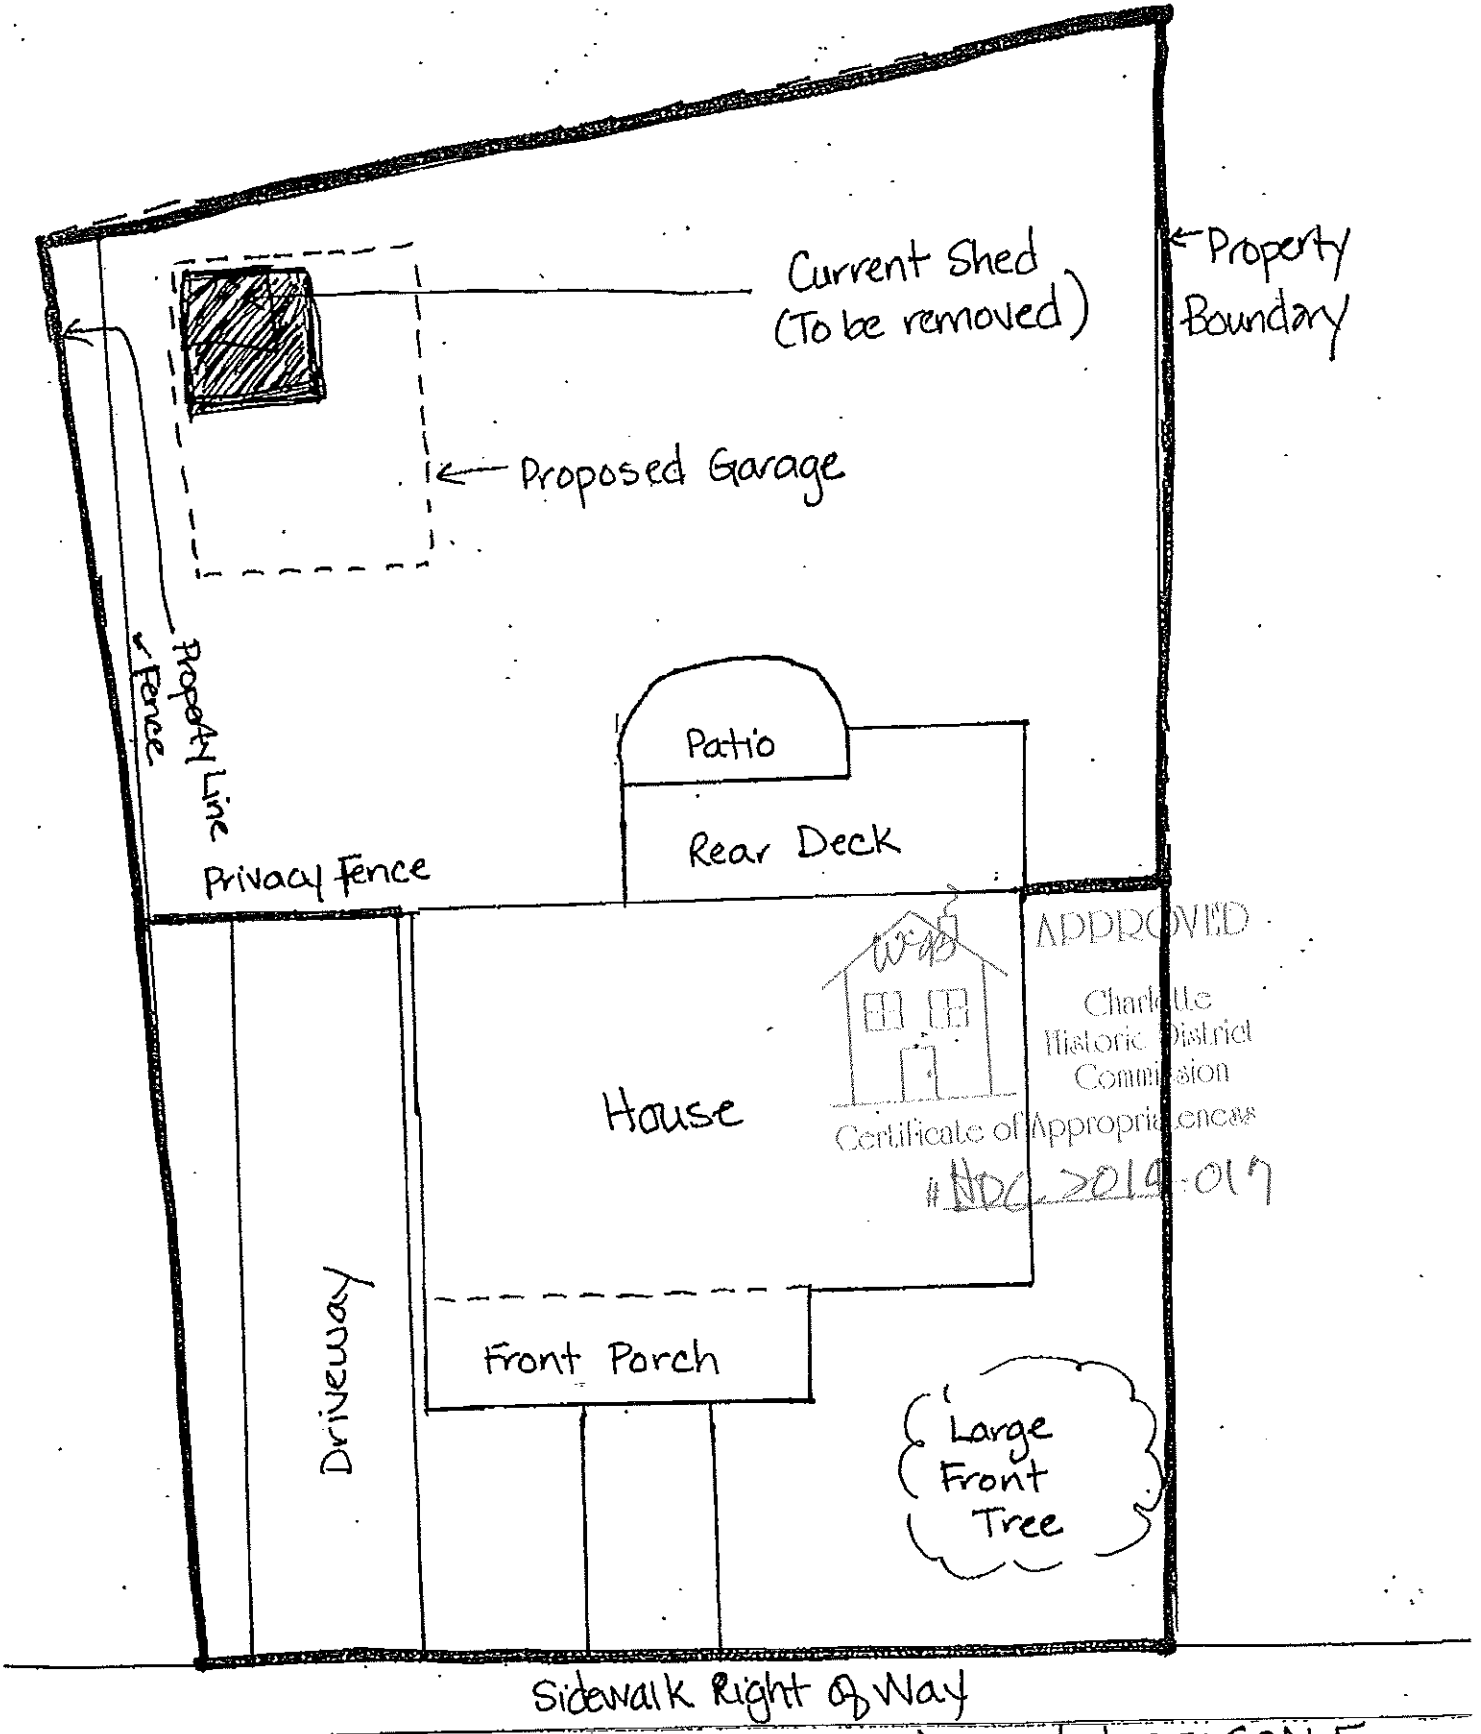 Current Shed
(To be removed)
Property
Boundary
Proposed Garage
Property Line
Fence
Patio
Rear Deck
Privacy Fence
APPROVED
Charlotte
Historic District
Commission
Certificate of Appropriateness
# HDC 2014-017
House
Driveway
Front Porch
Large
Front
Tree
Sidewalk Right of Way